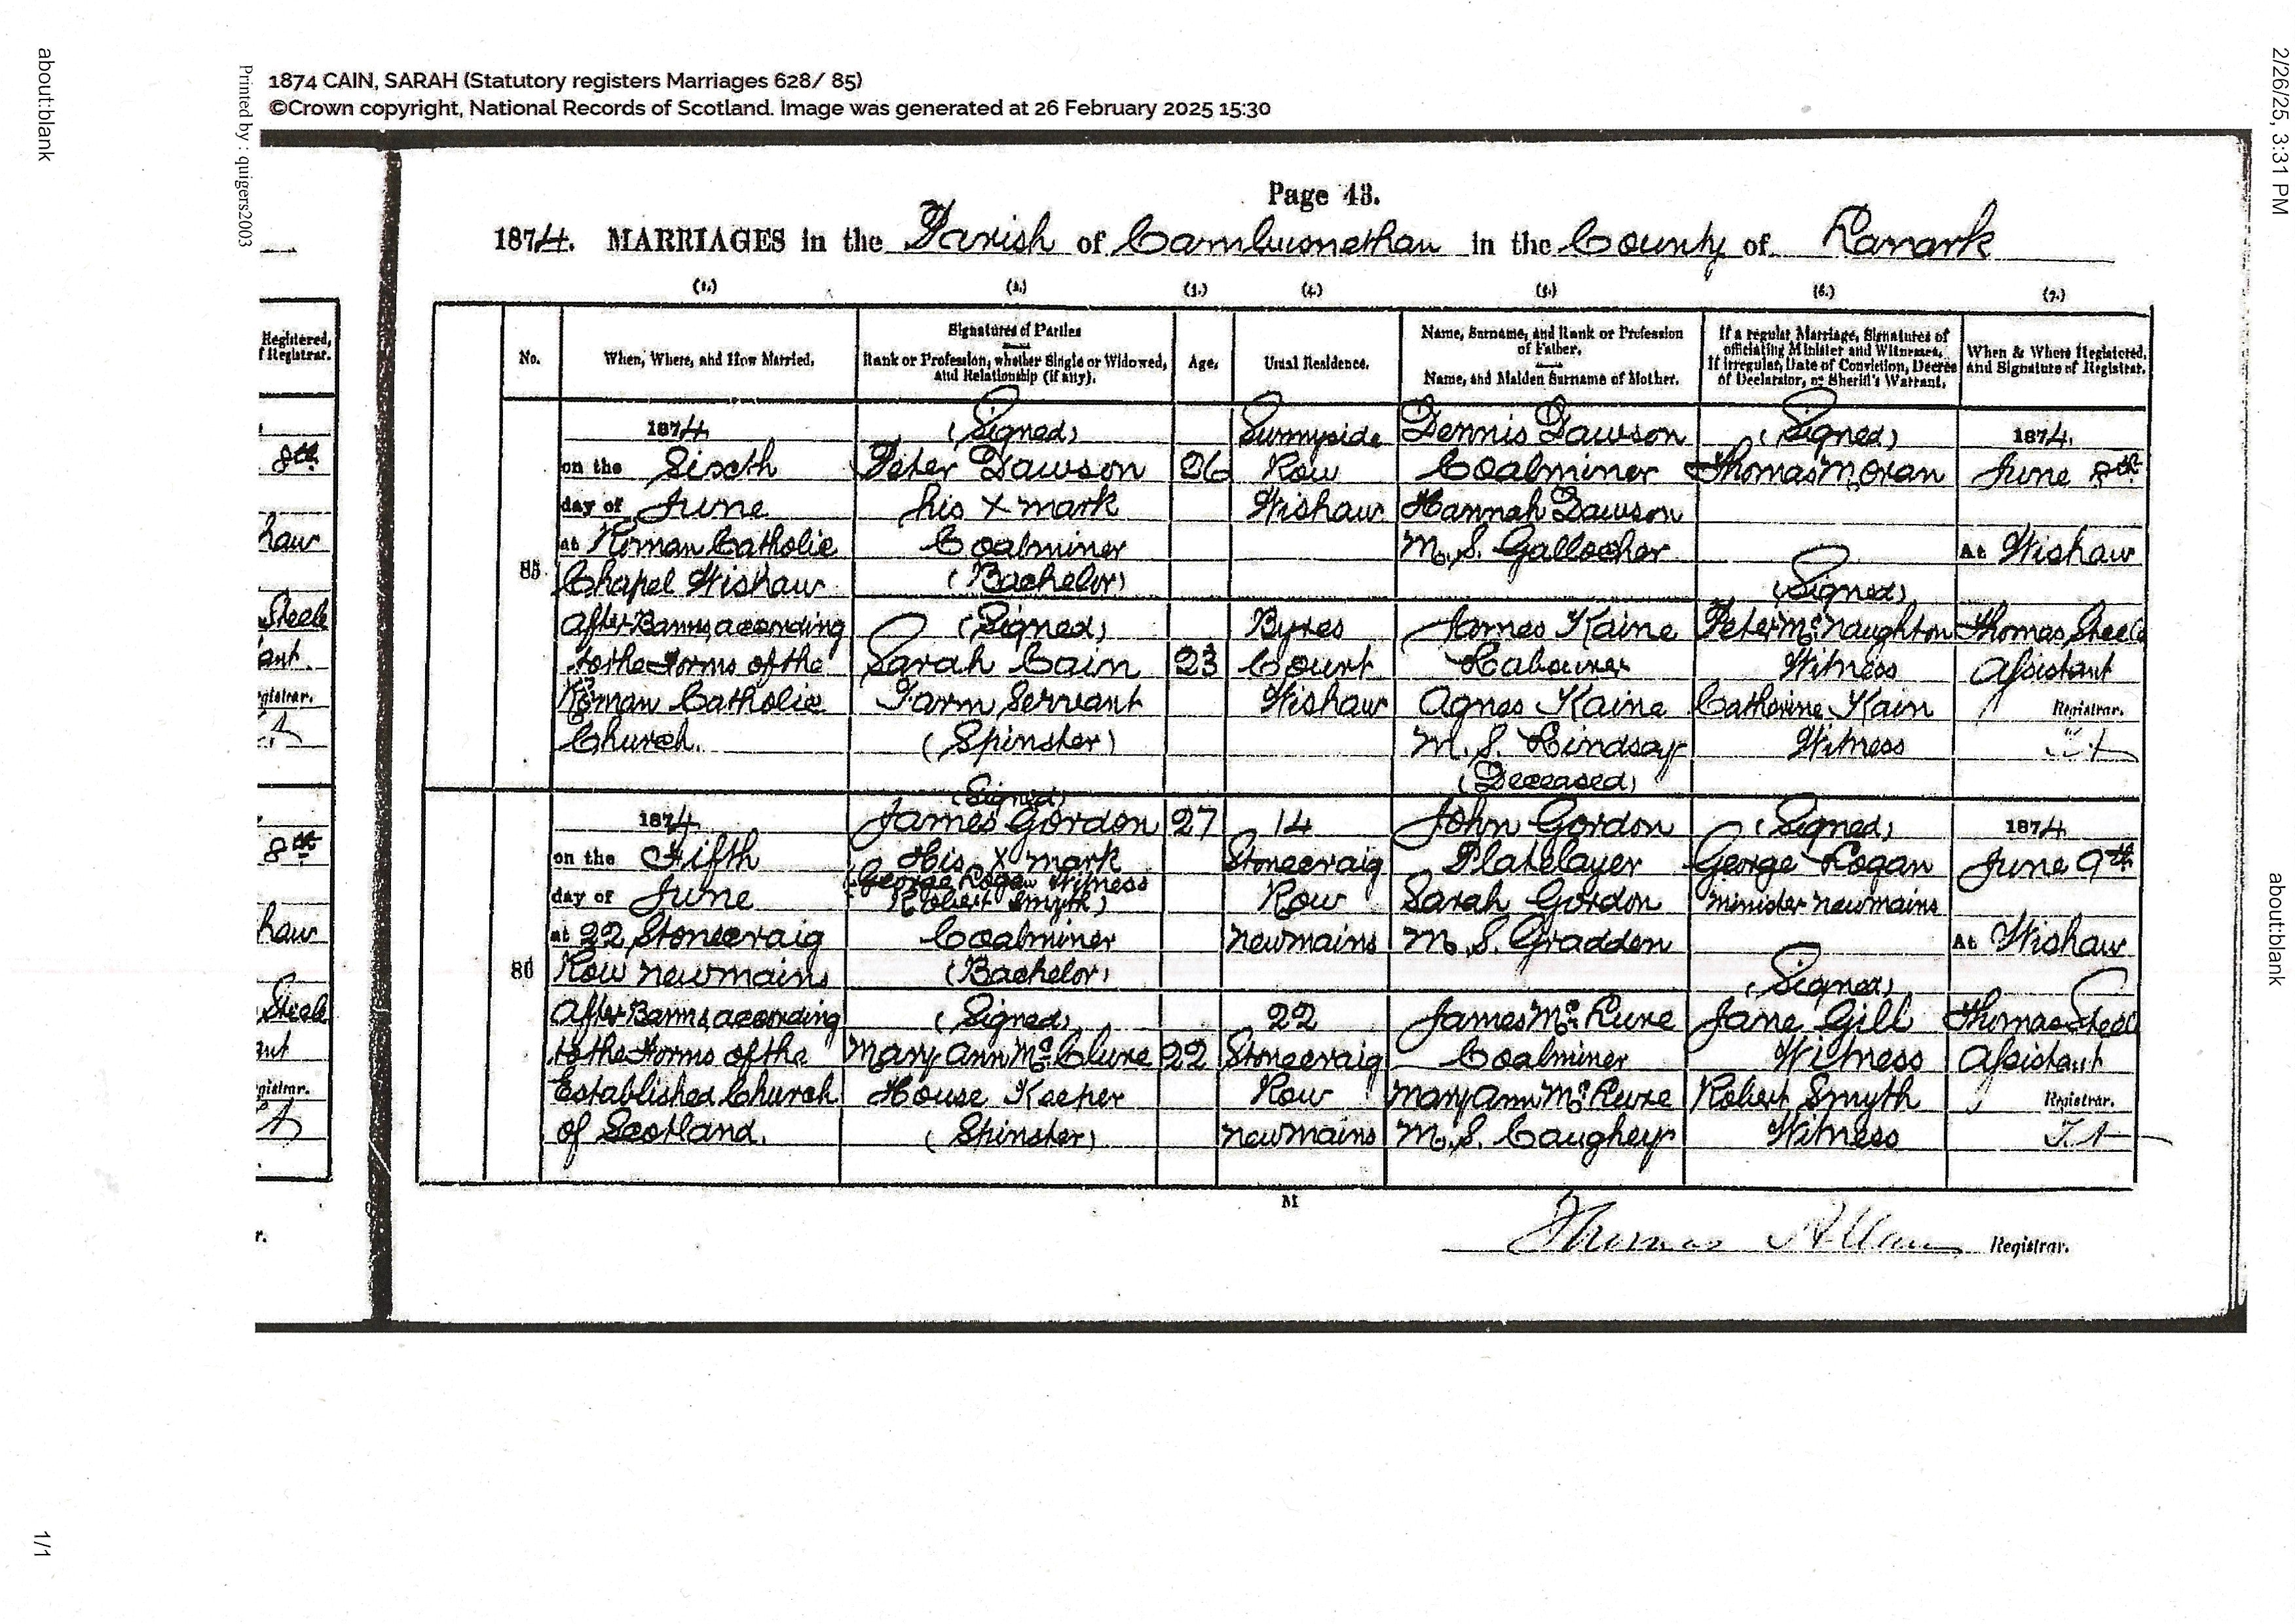 about:blank
Printed by : quigers2003
2/26/25, 3:31 PM
1874 CAIN, SARAH (Statutory registers Marriages 628/ 85)
©Crown copyright, National Records of Scotland. Image was generated at 26 February 2025 15:30
Page 43.
1874. MARRIAGES in the Parish of Cambusnethan in the County of Lanark
(1.) (2.) (3.) (4.) (5.) (6.) (7.)
Registered,
f Registrar.
8th
haw
Steele
ant.
gistrar.
8th
haw
Steele
ant
gistrar.
r.
No.
When, Where, and How Married.
Signatures of Parties
Rank or Profession, whether Single or Widowed,
and Relationship (if any).
Age.
Usual Residence.
Name, Surname, and Rank or Profession
of Father.
Name, and Maiden Surname of Mother.
If a regular Marriage, Signatures of
officiating Minister and Witnesses.
If irregular, Date of Conviction, Decree
of Declarator, or Sheriff's Warrant.
When & Where Registered,
and Signature of Registrar.
85
1874
on the Sixth
day of June
at Roman Catholic
Chapel Wishaw
After Banns, according
to the Forms of the
Roman Catholic
Church.
(Signed)
Peter Dawson
his X mark
Coalminer
(Bachelor)
(Signed)
Sarah Cain
Farm Servant
(Spinster)
26
23
Sunnyside
Row
Wishaw
Byres
Court
Wishaw
Dennis Dawson
Coalminer
Hannah Dawson
M.S. Gallocher
James Kaine
Labourer
Agnes Kaine
M.S. Lindsay
(Deceased)
(Signed)
Thomas Moran
(Signed)
Peter McNaughton
Witness
Catherine Kain
Witness
1874.
June 8th
At Wishaw
Thomas Steele
Assistant
Registrar.
86
1874
on the Fifth
day of June
at 22 Stonecraig
Row Newmains
After Banns, according
to the Forms of the
Established Church
of Scotland.
(Signed)
James Gordon
His X mark
(George Logan Witness
Robert Smyth)
Coalminer
(Bachelor)
(Signed)
Mary Ann McClure
House Keeper
(Spinster)
27
22
14
Stonecraig
Row
Newmains
22
Stonecraig
Row
Newmains
John Gordon
Platelayer
Sarah Gordon
M.S. Gradden
James McLure
Coalminer
Mary Ann McLure
M.S. Caughey
(Signed)
George Logan
Minister Newmains
(Signed)
Jane Gill
Witness
Robert Smyth
Witness
1874
June 9th
At Wishaw
Thomas Steele
Assistant
Registrar.
M
Thomas Allan Registrar.
about:blank
1/1